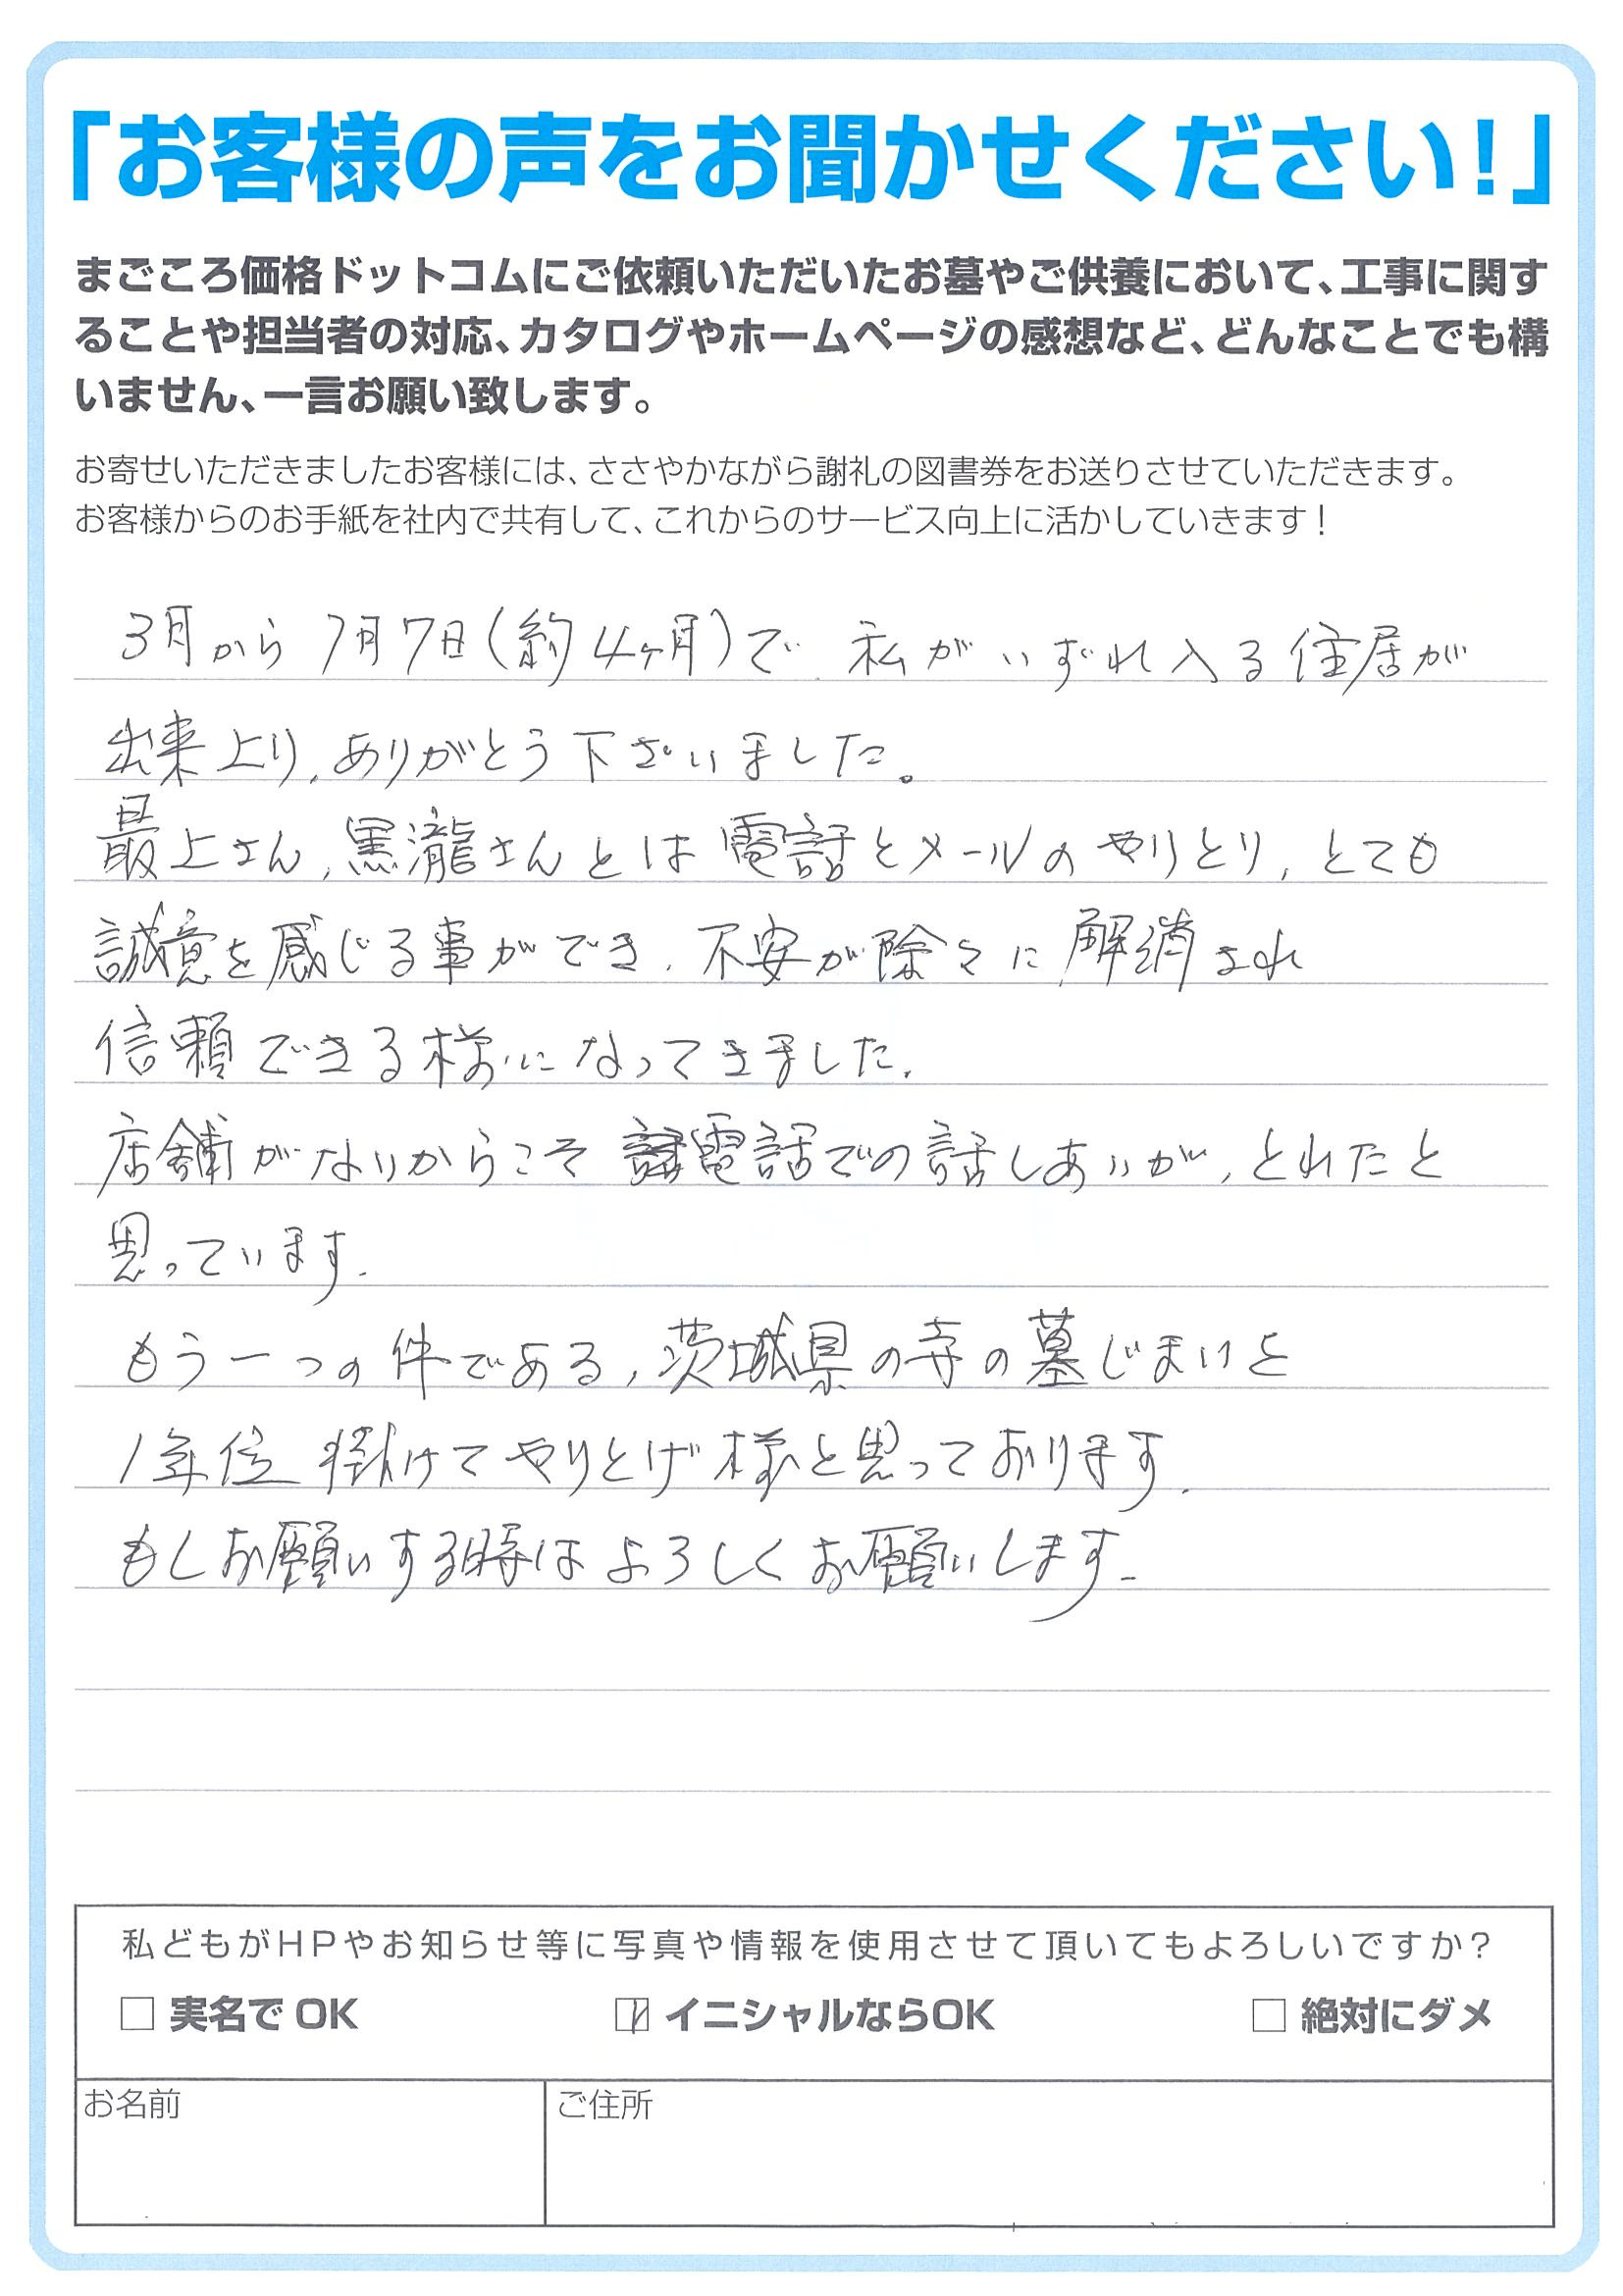 「お客様の声をお聞かせください!」
まごころ価格ドットコムにご依頼いただいたお墓やご供養において、工事に関す
ることや担当者の対応、カタログやホームページの感想など、どんなことでも構
いません、一言お願い致します。
お寄せいただきましたお客様には、ささやかながら謝礼の図書券をお送りさせていただきます。
お客様からのお手紙を社内で共有して、これからのサービス向上に活かしていきます!
3月から7月7日(約4ヶ月)で 私がいずれ入る住居が
出来上り,ありがとう下ざいました。
最上さん,黒瀧さんとは電話とメールのやりとり,とても
誠意を感じる事ができ.不安が除々に解消され
信頼できる様になってきました.
店舗がないからこそ 電話での話しあいが,とれたと
思っています.
もう一つの件である,茨城県の寺の墓じまいを
1年位 掛けてやりとげ様と思っております.
もしお願いする時はよろしくお願いします.
私どもがHPやお知らせ等に写真や情報を使用させて頂いてもよろしいですか?
□ 実名でOK ☑ イニシャルならOK □ 絶対にダメ
お名前 ご住所